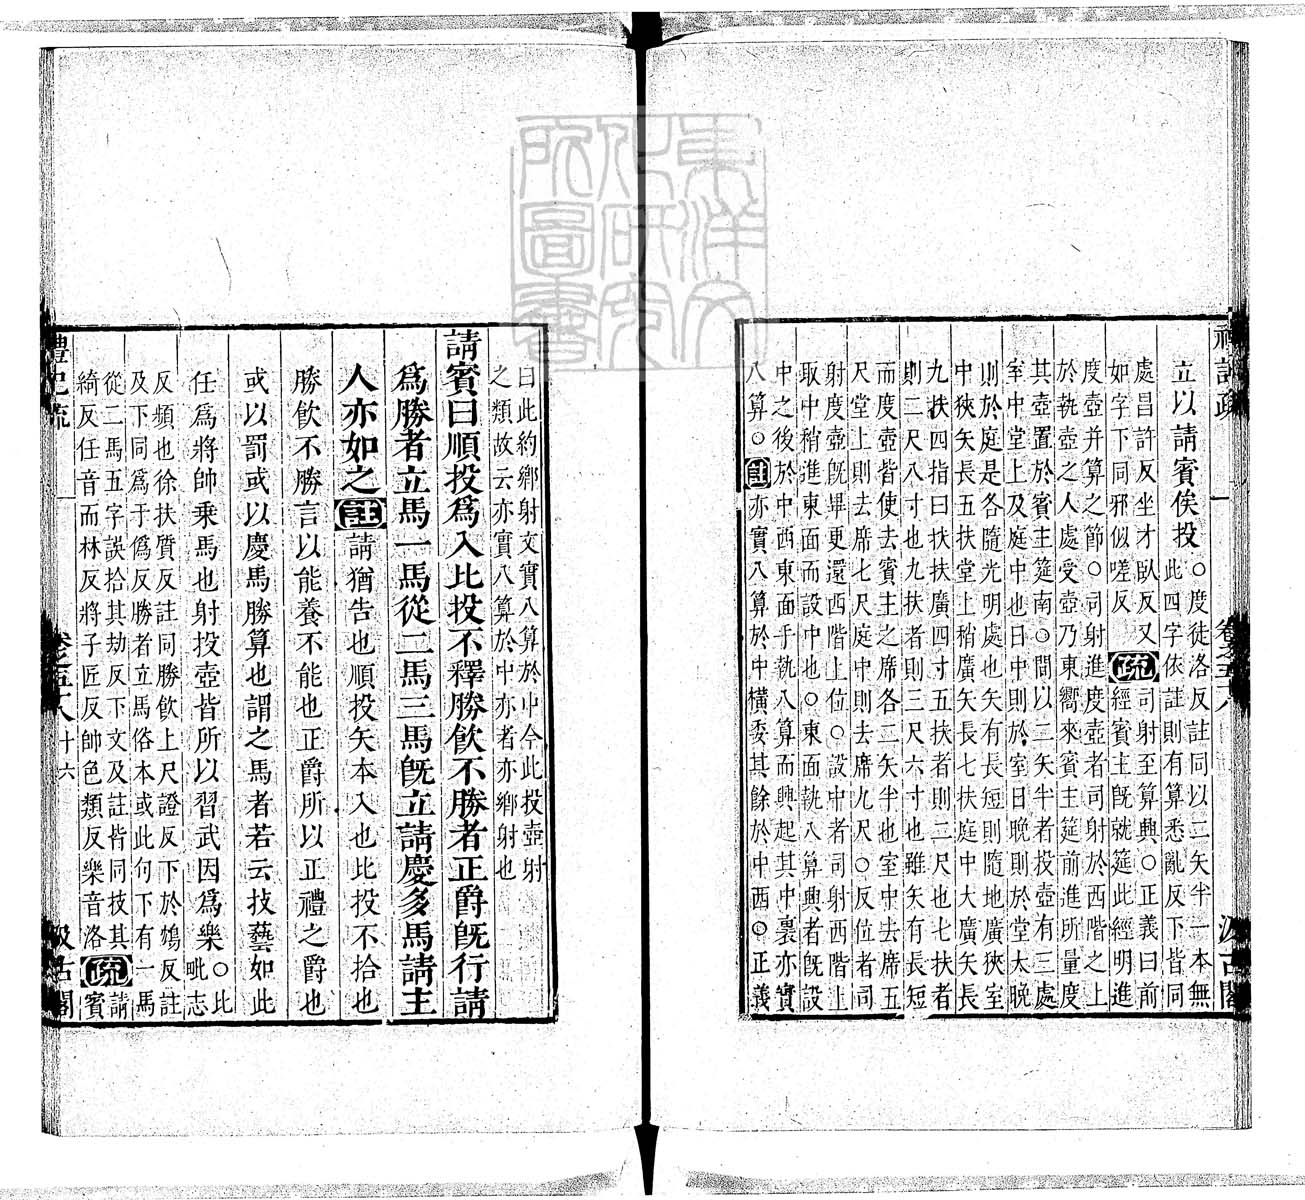 禮記疏 卷之五十八 汲古閣
立以請賓俟投○度徒洛反註同以二矢半一本無
此四字依註則有算悉亂反下皆同
處昌許反坐才臥反又
如字下同邪似嗟反疏司射至算興○正義曰前
經賓主旣就筵此經明進
度壺并算之節○司射進度壺者司射於西階之上
於執壺之人處受壺乃東嚮來賓主筵前進所量度
其壺置於賓主筵南○間以二矢半者投壺有三處
室中堂上及庭中也日中則於室日晚則於堂太晚
則於庭是各隨光明處也矢有長短則隨地廣狹室
中狹矢長五扶堂上稍廣矢長七扶庭中大廣矢長
九扶四指曰扶扶廣四寸五扶者則二尺也七扶者
則二尺八寸也九扶者則三尺六寸也雖矢有長短
而度壺皆使去賓主之席各二矢半也室中去席五
尺堂上則去席七尺庭中則去席九尺○反位者司
射度壺旣畢更還西階上位○設中者司射西階上
取中稍進東面而設中也○東面執八算興者旣設
中之後於中西東面手執八算而興起其中裏亦實
八算○註亦實八算於中橫委其餘於中西○正義
曰此約鄉射文實八算於中今此投壺射
之類故云亦實八算於中亦者亦鄉射也
請賓曰順投爲入比投不釋勝飮不勝者正爵旣行請
爲勝者立馬一馬從二馬三馬旣立請慶多馬請主
人亦如之註請猶告也順投矢本入也比投不拾也
勝飮不勝言以能養不能也正爵所以正禮之爵也
或以罰或以慶馬勝算也謂之馬者若云技藝如此
任爲將帥乘馬也射投壺皆所以習武因爲樂○比
毗志
反頻也徐扶質反註同勝飮上尺證反下於鴆反註
及下同爲于僞反勝者立馬俗本或此句下有一馬
從二馬五字誤拾其劫反下文及註皆同技其
綺反任音而林反將子匠反帥色類反樂音洛疏請
賓
禮記疏 卷之五十八 十六 汲古閣
東洋文化研究所圖書